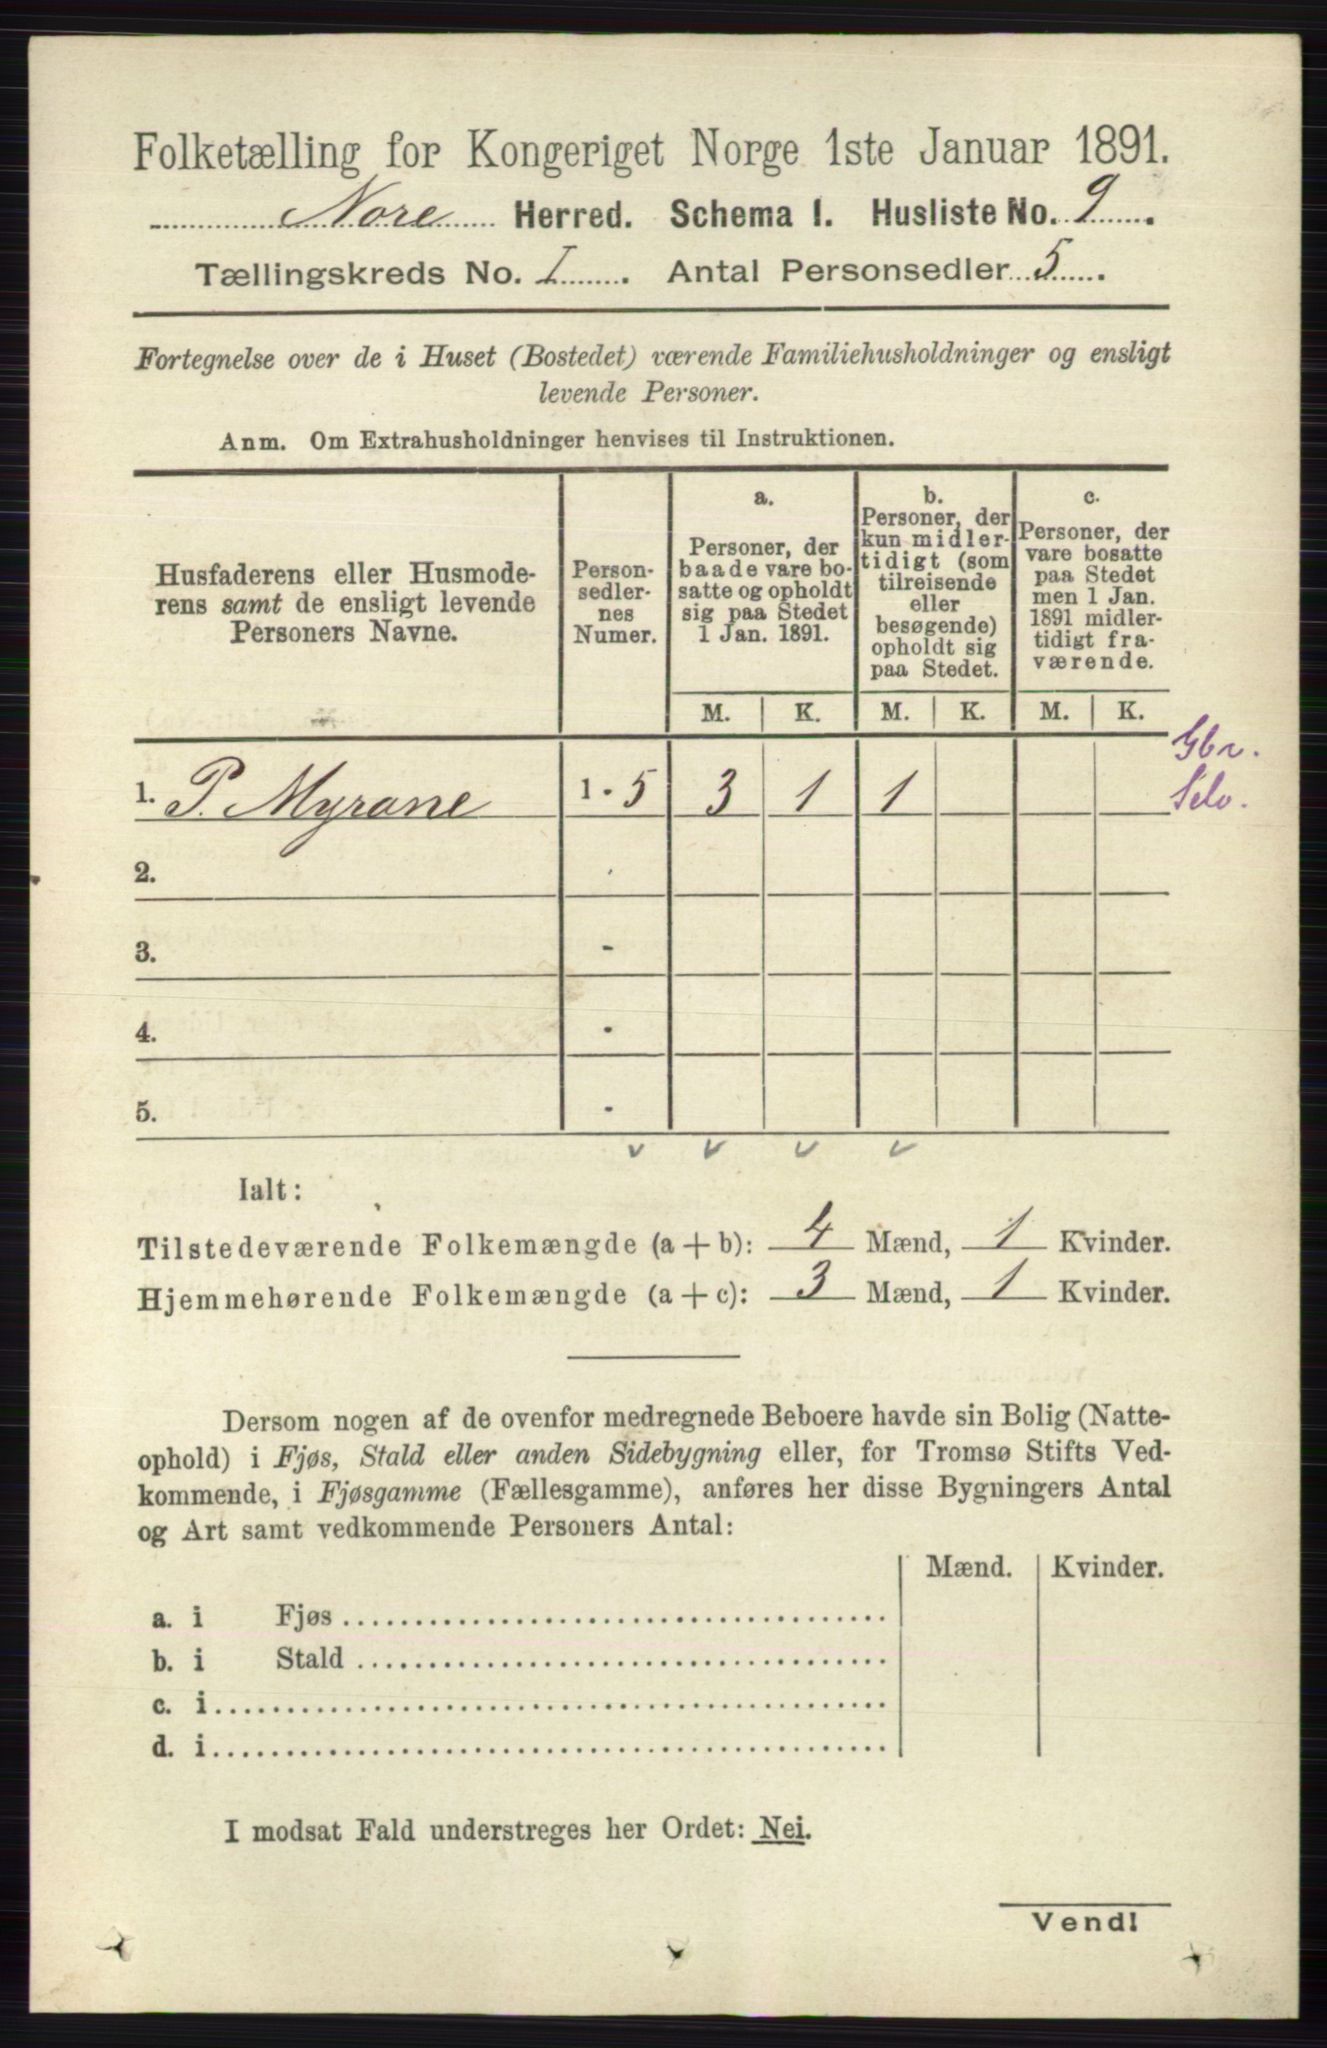 Folketælling for Kongeriget Norge 1ste Januar 1891.
Nore Herred. Schema I. Husliste No. 9.
Tællingskreds No. I. Antal Personsedler 5.
Fortegnelse over de i Huset (Bostedet) værende Familiehusholdninger og ensligt
levende Personer.
Anm. Om Extrahusholdninger henvises til Instruktionen.
Husfaderens eller Husmode-
rens samt de ensligt levende
Personers Navne.
Person-
sedler-
nes
Numer.
a.
Personer, der
baade vare bo-
satte og opholdt
sig paa Stedet
1 Jan. 1891.
b.
Personer, der
kun midler-
tidigt (som
tilreisende
eller
besøgende)
opholdt sig
paa Stedet.
c.
Personer, der
vare bosatte
paa Stedet
men 1 Jan.
1891 midler-
tidigt fra-
værende.
M. K. M. K. M. K.
Gbr.
1. P. Myrane 1 - 5 3 1 1 Selv.
2.
3. -
4. -
5. -
Ialt:
Tilstedeværende Folkemængde (a + b): 4 Mænd, 1 Kvinder.
Hjemmehørende Folkemængde (a + c): 3 Mænd, 1 Kvinder.
Dersom nogen af de ovenfor medregnede Beboere havde sin Bolig (Natte-
ophold) i Fjøs, Stald eller anden Sidebygning eller, for Tromsø Stifts Ved-
kommende, i Fjøsgamme (Fællesgamme), anføres her disse Bygningers Antal
og Art samt vedkommende Personers Antal:
Mænd. Kvinder.
a. i Fjøs
b. i Stald
c. i
d. i
I modsat Fald understreges her Ordet: Nei.
Vend!